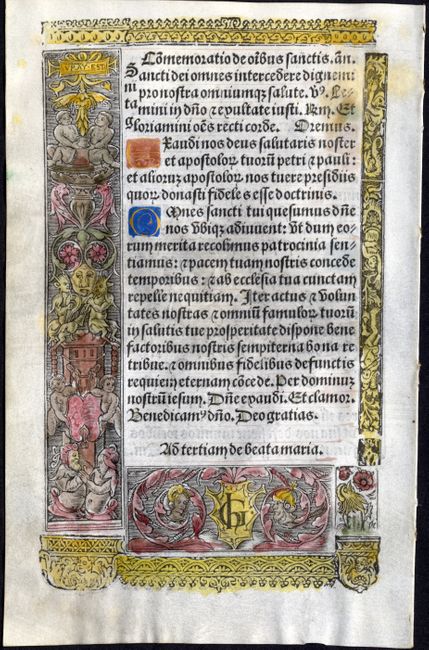 Cõmemoratio de oĩbus sanctis. añ.
Sancti dei omnes intercedere dignemi
ni pro nostra omniumqʒ salute. V̷. Le-
tamini in dño et exultate iusti. Et
gloriamini oẽs recti corde. Oremus.
Exaudi nos deus salutaris noster
et apostolorũ tuorũ petri et pauli:
et aliorum apostolorũ nos tuere presidiis
quorũ donasti fideles esse doctrinis.
Omnes sancti tui quesumus dñe
nos vbiqʒ adiuvent: vt dum eo-
rum merita recolimus patrocinia sen-
tiamus: et pacem tuam nostris concede
temporibus: et ab ecclesia tua cunctam
repelle nequitiam. Iter actus et volun
tates nostras et omniũ famulorũ tuorũ
in salutis tue prosperitate dispone bene
factoribus nostris sempiterna bona re
tribue. et omnibus fidelibus defunctis
requiem eternam cõcede. Per dominum
nostrũ iesum. Dñe exaudi. Et clamor.
Benedicamꝰ dño. Deo gratias.
Ad tertiam de beata maria.